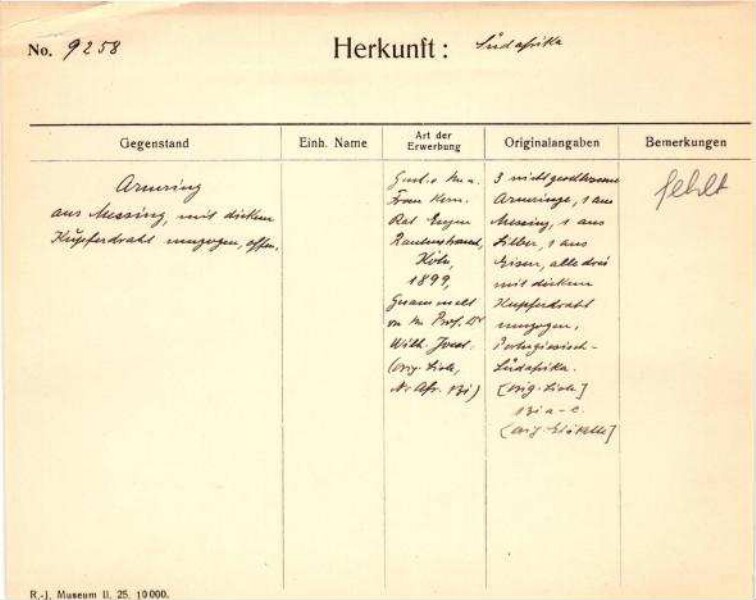 No. 9258 Herkunft: Südafrika
Gegenstand
Einh. Name
Art der
Erwerbung
Originalangaben
Bemerkungen
Armring
aus Messing, mit dickem
Kupferdraht umzogen, offen.
Gesch. v. Hn u.
Frau Kom.
Rat Eugen
Rautenstrauch,
Köln,
1899,
Gesammelt
von Hn Prof. Dr
Wilh. Joest.
(orig. Liste,
Nr Afr. 131)
3 nicht geschlossene
Armringe, 1 aus
Messing, 1 aus
Silber, 1 aus
Eisen, alle drei
mit dickem
Kupferdraht
umzogen,
Portugiesisch-
Südafrika.
[orig. Liste]
131 a-c.
[orig. Etikette]
fehlt
R.-J. Museum II. 25. 10000.